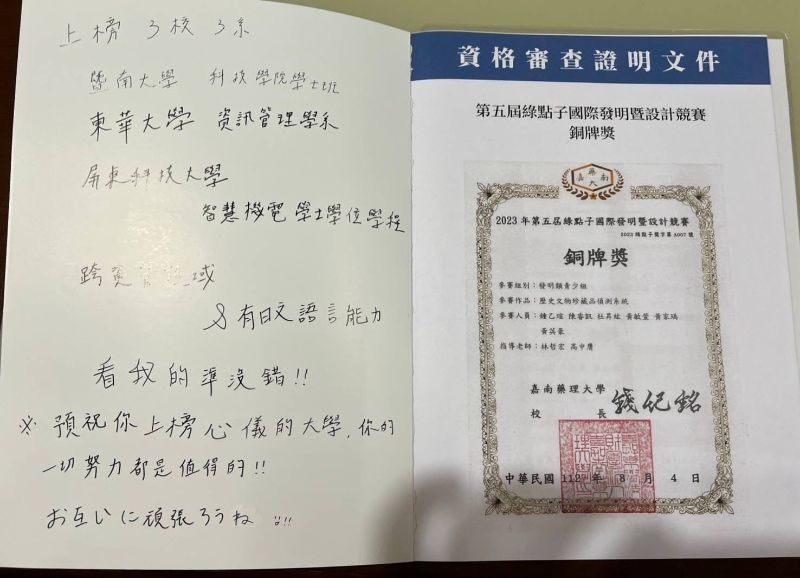 上榜 3校 3系
暨南大學 科技學院學士班
東華大學 資訊管理學系
屏東科技大學
智慧機電學士學位學程
跨 域
& 有日文語言能力
看我的準沒錯!!
※ 預祝你上榜心儀的大學，你的
一切努力都是值得的!!
お互いに頑張ろうね !!
資格審查證明文件
第五屆綠點子國際發明暨設計競賽
銅牌獎
嘉藥南大
2023 年第五屆綠點子國際發明暨設計競賽
2023 綠點子獎字第 A007 號
銅牌獎
參賽組別：發明類青少組
參賽作品：歷史文物珍藏品偵測系統
參賽人員：鍾乙瑄 陳睿凱 杜昇紘 黃敏萱 黃家瑀
黃英豪
指導老師：林哲宏 高中膺
嘉南藥理大學
校 長 錢紀銘
中華民國 112 年 8 月 4 日